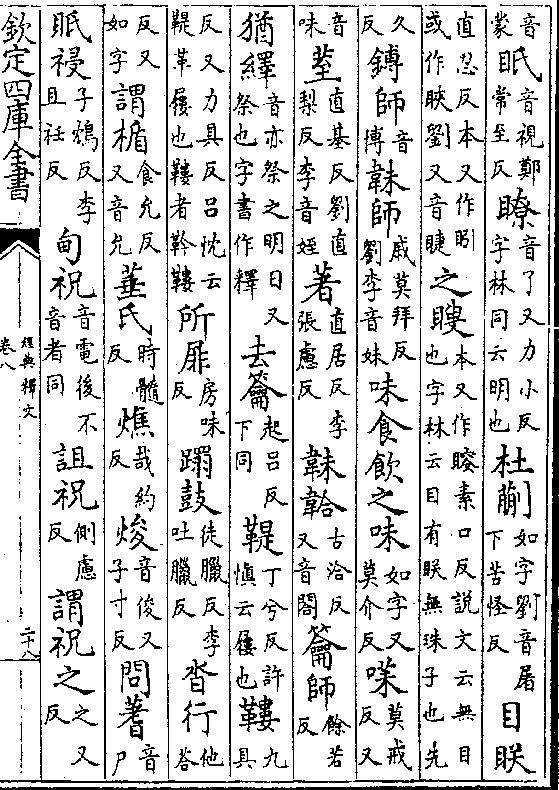 音蒙眡音視鄭常至反瞭音了又力小反字林同云明也杜蒯如字劉音屠下苦怪反目眹
直忍反本又作䀕或作䀹劉又音睫之瞍本又作䁂素口反說文云無目也字林云目有眹無珠子也先
久反鎛師音博韎師戚莫拜反劉李音妹味食飲之味如字又莫介反𠿒莫戒反又
音味荎直基反劉直梨反李音姪著直居反李張慮反韎韐古洽反又音閤籥師餘若反
猶繹音亦祭之明日又祭也字書作釋去籥起呂反下同鞮丁兮反許慎云屨也鞻九具
反又力具反呂忱云鞮革屨也鞻者靲鞻所屝房味反蹋鼓徒臘反李吐臘反沓行他荅
反又如字謂楯食允反又音允菙氏時髓反燋哉約反焌音俊又子寸反問蓍音尸
眡祲子鴆反李且衽反甸祝音電後不音者同詛祝側慮反謂祝之之又反
欽定四庫全書
經典釋文
卷八
二十八